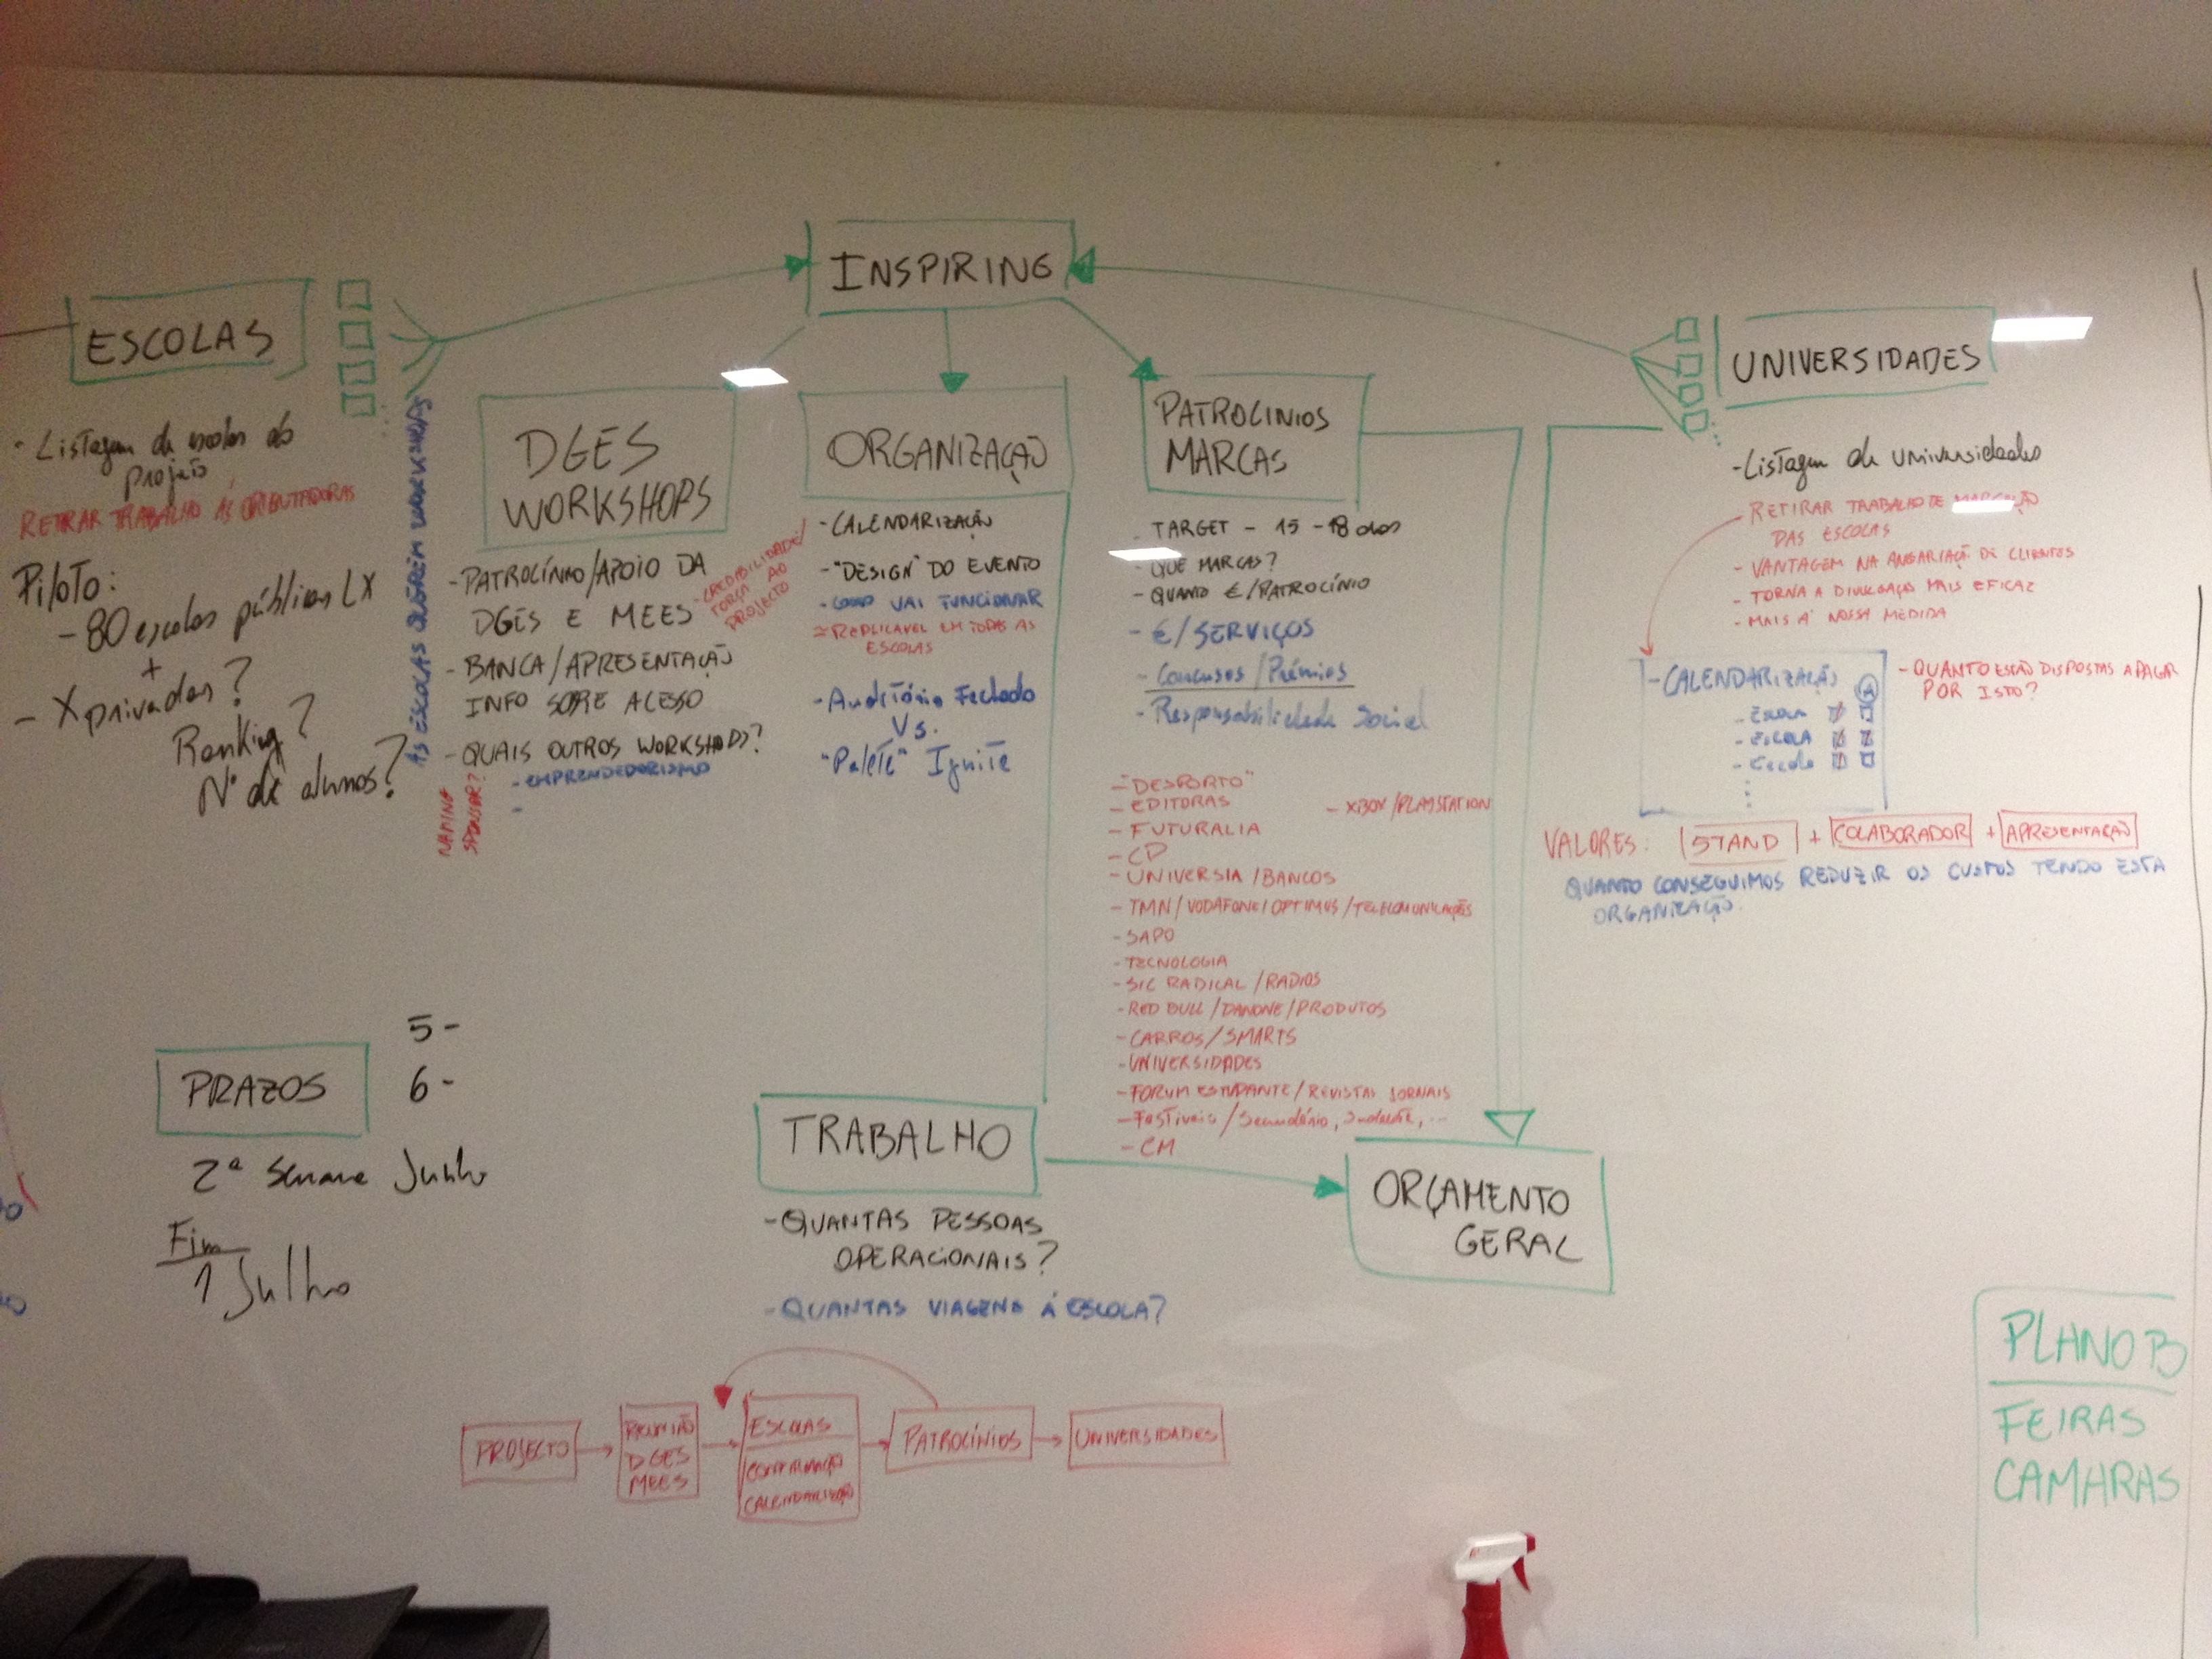 INSPIRING
ESCOLAS
- Listagem de escolas do
projeto
RETIRAR TRABALHO ÀS ORIENTADORAS
Piloto:
- 80 escolas públicas LX
+
- X privadas?
Ranking?
Nº de alunos?
AS ESCOLAS QUEREM WORKSHOPS
DGES
WORKSHOPS
- PATROCÍNIO/APOIO DA
DGES E MEES
- CREDIBILIDADE/
FORÇA AO
PROJECTO
- BANCA/APRESENTAÇÃO
INFO SOBRE ACESSO
- QUAIS OUTROS WORKSHOPS?
- EMPRENDEDORISMO
-
NAMING
SPONSOR?
ORGANIZAÇÃO
- CALENDARIZAÇÃO
- "DESIGN" DO EVENTO
- COMO VAI FUNCIONAR
= REPLICAVEL EM TODAS AS
ESCOLAS
- Auditório Fechado
Vs.
"Palete" Ignite
PATROCINIOS
MARCAS
- TARGET - 15 - 18 anos
- QUE MARCAS?
- QUANTO €/PATROCÍNIO
- €/SERVIÇOS
- Concursos/Prémios
- Responsabilidade Social
- "DESPORTO"
- EDITORAS
- XBOX/PLAYSTATION
- FUTURALIA
- CP
- UNIVERSIA/BANCOS
- TMN/VODAFONE/OPTIMUS/TELECOMUNICAÇÕES
- SAPO
- TECNOLOGIA
- SIC RADICAL/RADIOS
- RED BULL/DANONE/PRODUTOS
- CARROS/SMARTS
- UNIVERSIDADES
- FORUM ESTUDANTE/REVISTAS JORNAIS
- Festivais/Secundário, Sudoeste, ...
- CM
UNIVERSIDADES
- Listagem de universidades
RETIRAR TRABALHO DE MARCAÇÃO
DAS ESCOLAS
- VANTAGEM NA ANGARIAÇÃO DE CLIENTES
- TORNA A DIVULGAÇÃO MAIS EFICAZ
- MAIS À NOSSA MEDIDA
- CALENDARIZAÇÃO
A
- Escola
- ESCOLA
- Escola
- QUANTO ESTÃO DISPOSTAS A PAGAR
POR ISTO?
VALORES: STAND + COLABORADOR + APRESENTAÇÃO
QUANTO CONSEGUIMOS REDUZIR OS CUSTOS TENDO ESTA
ORGANIZAÇÃO.
PRAZOS
5 -
6 -
2ª Semana Junho
Fim
1 Julho
TRABALHO
- QUANTAS PESSOAS
OPERACIONAIS?
- QUANTAS VIAGENS À ESCOLA?
ORÇAMENTO
GERAL
PROJECTO
REUNIÃO
DGES
MEES
ESCOLAS
CONFIRMAÇÃO
CALENDARIZAÇÃO
PATROCÍNIOS
UNIVERSIDADES
PLANO B
FEIRAS
CAMARAS